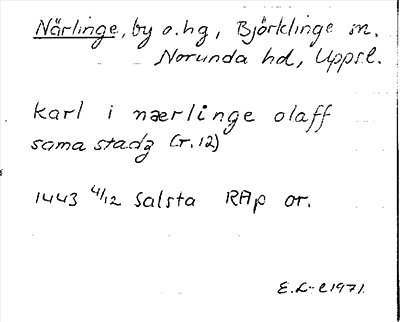 Närlinge, by o. hg, Björklinge sn.
Norunda hd, Uppsl.
karl i nærlinge olaff
sama stadz (r. 12)
1443 4/12 Salsta RAp or.
E. L-e 1971.